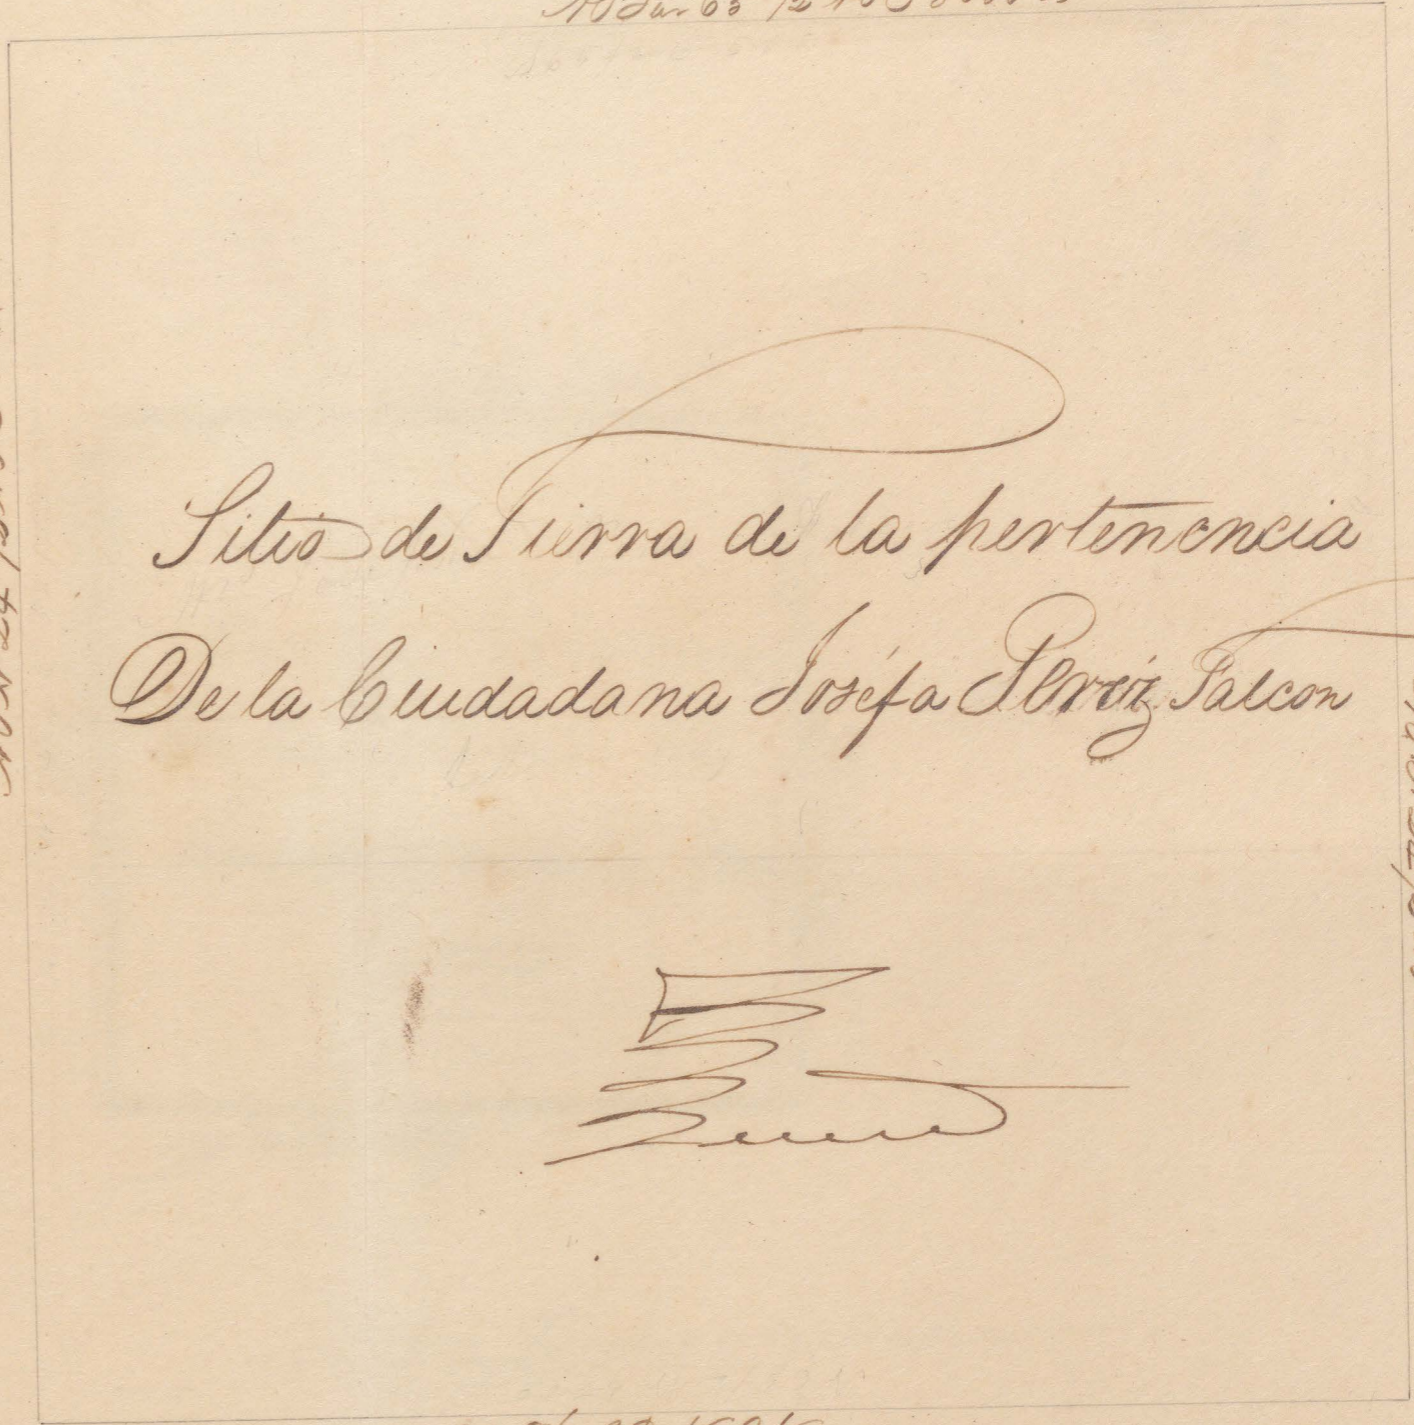 Sitio de Tierra de la pertenencia
De la Ciudadana Joséfa Peréz Falcon